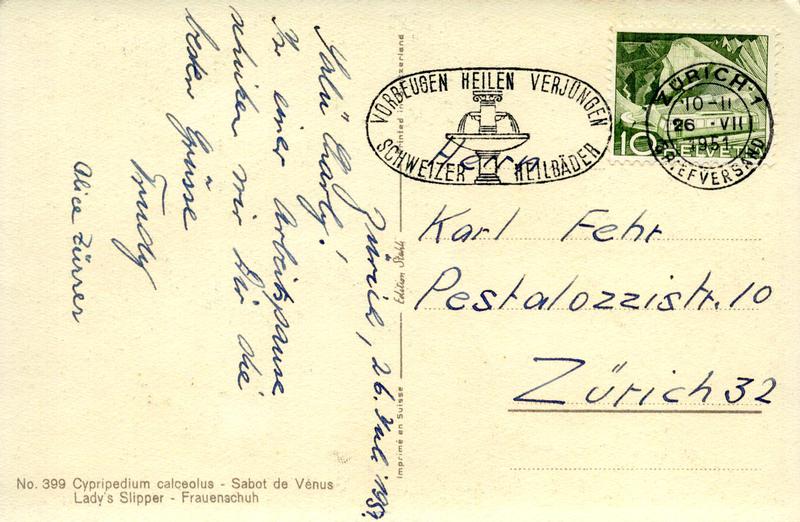 Zürich, 26. Juli 1951
Salü Charly!
In einer Arbeitspause
schicken wir Dir die
besten Grüsse
Trudy
Alice Zürrer
No. 399 Cypripedium calceolus - Sabot de Vénus
Lady's Slipper - Frauenschuh
Imprimé en Suisse
Edition Stehli
Printed in Switzerland
VORBEUGEN HEILEN VERJÜNGEN
SCHWEIZER HEILBÄDER
ZÜRICH 1
10-11
26.VII
1951
BRIEFVERSAND
10 HELVETIA
Herrn
Karl Fehr
Pestalozzistr. 10
Zürich 32